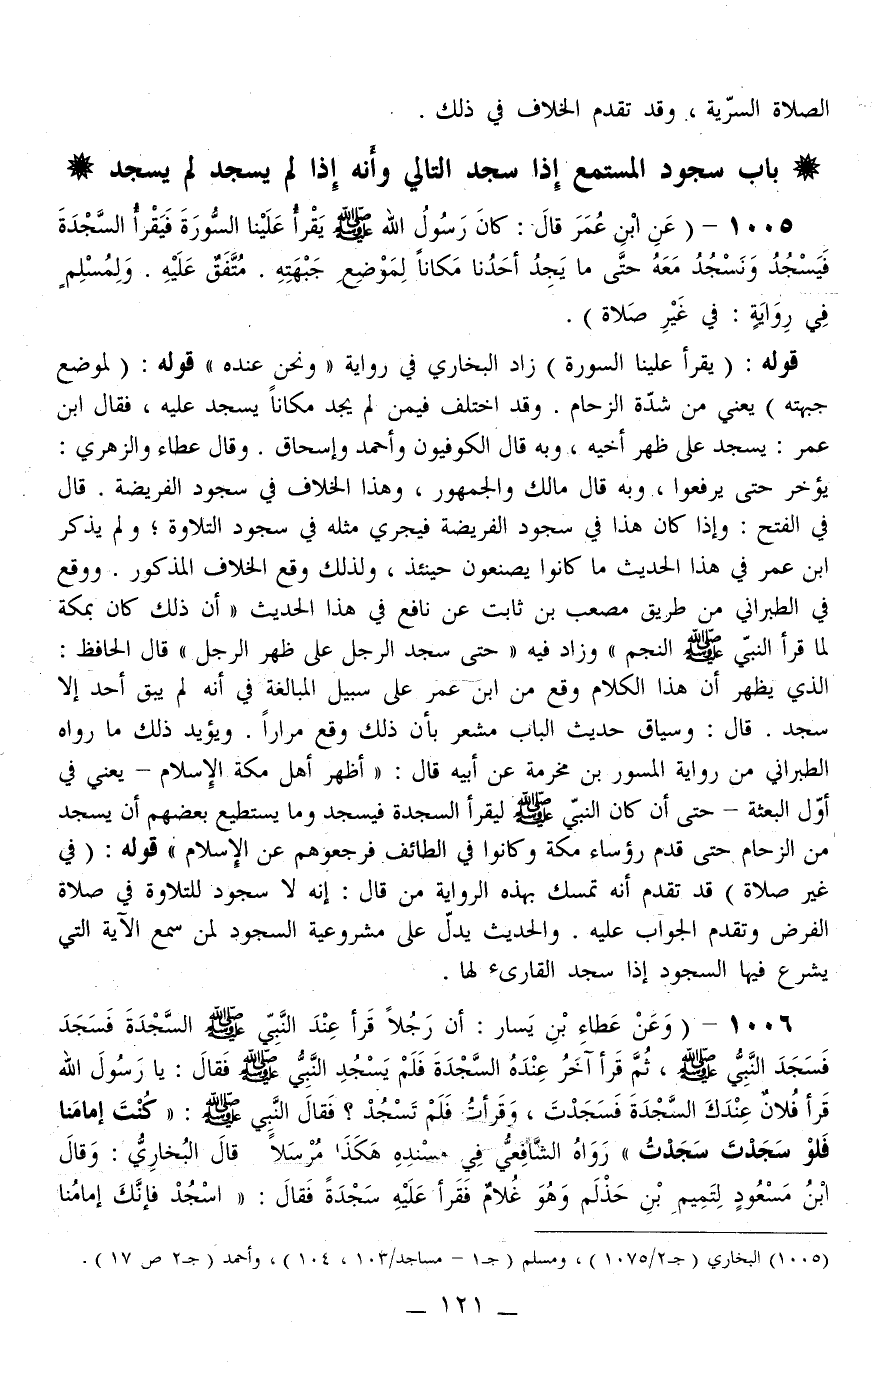 الصلاة السرّية ، وقد تقدم الخلاف في ذلك .
❋ باب سجود المستمع إذا سجد التالي وأنه إذا لم يسجد لم يسجد ❋
١٠٠٥ – ( عَنِ ابْنِ عُمَرَ قالَ : كانَ رَسُولُ الله ﷺ يَقْرأُ عَلَيْنا السُّورَةَ فَيَقْرأُ السَّجْدَةَ
فَيَسْجُدُ وَنَسْجُدُ مَعَهُ حتَّى ما يَجِدُ أحَدُنا مَكاناً لِمَوْضِعِ جَبْهَتِهِ . مُتَّفَقٌ عَلَيْهِ . وَلِمُسْلِمٍ
فِي رِوَايَةٍ : في غَيْرِ صَلاة ) .
قوله : ( يقرأ علينا السورة ) زاد البخاري في رواية « ونحن عنده » قوله : ( لموضع
جبهته ) يعني من شدّة الزحام . وقد اختلف فيمن لم يجد مكاناً يسجد عليه ، فقال ابن
عمر : يسجد على ظهر أخيه ، وبه قال الكوفيون وأحمد وإسحاق . وقال عطاء والزهري :
يؤخر حتى يرفعوا ، وبه قال مالك والجمهور ، وهذا الخلاف في سجود الفريضة . قال
في الفتح : وإذا كان هذا في سجود الفريضة فيجري مثله في سجود التلاوة ؛ ولم يذكر
ابن عمر في هذا الحديث ما كانوا يصنعون حينئذ ، ولذلك وقع الخلاف المذكور . ووقع
في الطبراني من طريق مصعب بن ثابت عن نافع في هذا الحديث « أن ذلك كان بمكة
لما قرأ النبيّ ﷺ النجم » وزاد فيه « حتى سجد الرجل على ظهر الرجل » قال الحافظ :
الذي يظهر أن هذا الكلام وقع من ابن عمر على سبيل المبالغة في أنه لم يبق أحد إلا
سجد . قال : وسياق حديث الباب مشعر بأن ذلك وقع مراراً . ويؤيد ذلك ما رواه
الطبراني من رواية المسور بن مخرمة عن أبيه قال : « أظهر أهل مكة الإسلام – يعني في
أوّل البعثة – حتى أن كان النبيّ ﷺ ليقرأ السجدة فيسجد وما يستطيع بعضهم أن يسجد
من الزحام حتى قدم رؤساء مكة وكانوا في الطائف فرجعوهم عن الإسلام » قوله : ( في
غير صلاة ) قد تقدم أنه تمسك بهذه الرواية من قال : إنه لا سجود للتلاوة في صلاة
الفرض وتقدم الجواب عليه . والحديث يدلّ على مشروعية السجود لمن سمع الآية التي
يشرع فيها السجود إذا سجد القارىء لها .
١٠٠٦ – ( وَعَنْ عَطاءِ بْنِ يَسار : أن رَجُلاً قَرأ عِنْدَ النَّبيّ ﷺ السَّجْدَةَ فَسَجَدَ
فَسَجَدَ النَّبيُّ ﷺ ، ثُمَّ قَرأ آخَرُ عِنْدَهُ السَّجْدَةَ فَلَمْ يَسْجُدِ النَّبيُّ ﷺ فَقالَ : يا رَسُولَ الله
قَرأ فُلانٌ عِنْدَكَ السَّجْدَةَ فَسَجَدْتَ ، وَقَرأتُ فَلَمْ تَسْجُدْ ؟ فَقالَ النَّبي ﷺ : « كُنْتَ إمامَنا
فَلَوْ سَجَدْتَ سَجَدْتُ » رَوَاهُ الشَّافِعيُّ فِي مسْندِهِ هَكَذَا مُرْسَلاً قالَ البُخاريُّ : وَقالَ
ابْنُ مَسْعُودٍ لِتَمِيمِ بْنِ حَذْلَم وَهُوَ غُلامٌ فَقَرأ عَلَيْهِ سَجْدَةً فَقالَ : « اسْجُدْ فإنَّكَ إمامُنا
(١٠٠٥) البخاري ( جـ٢/١٠٧٥ ) ، ومسلم ( جـ١ – مساجد/١٠٣ ، ١٠٤ ) ، وأحمد ( جـ٢ ص ١٧ ) .
— ١٢١ —